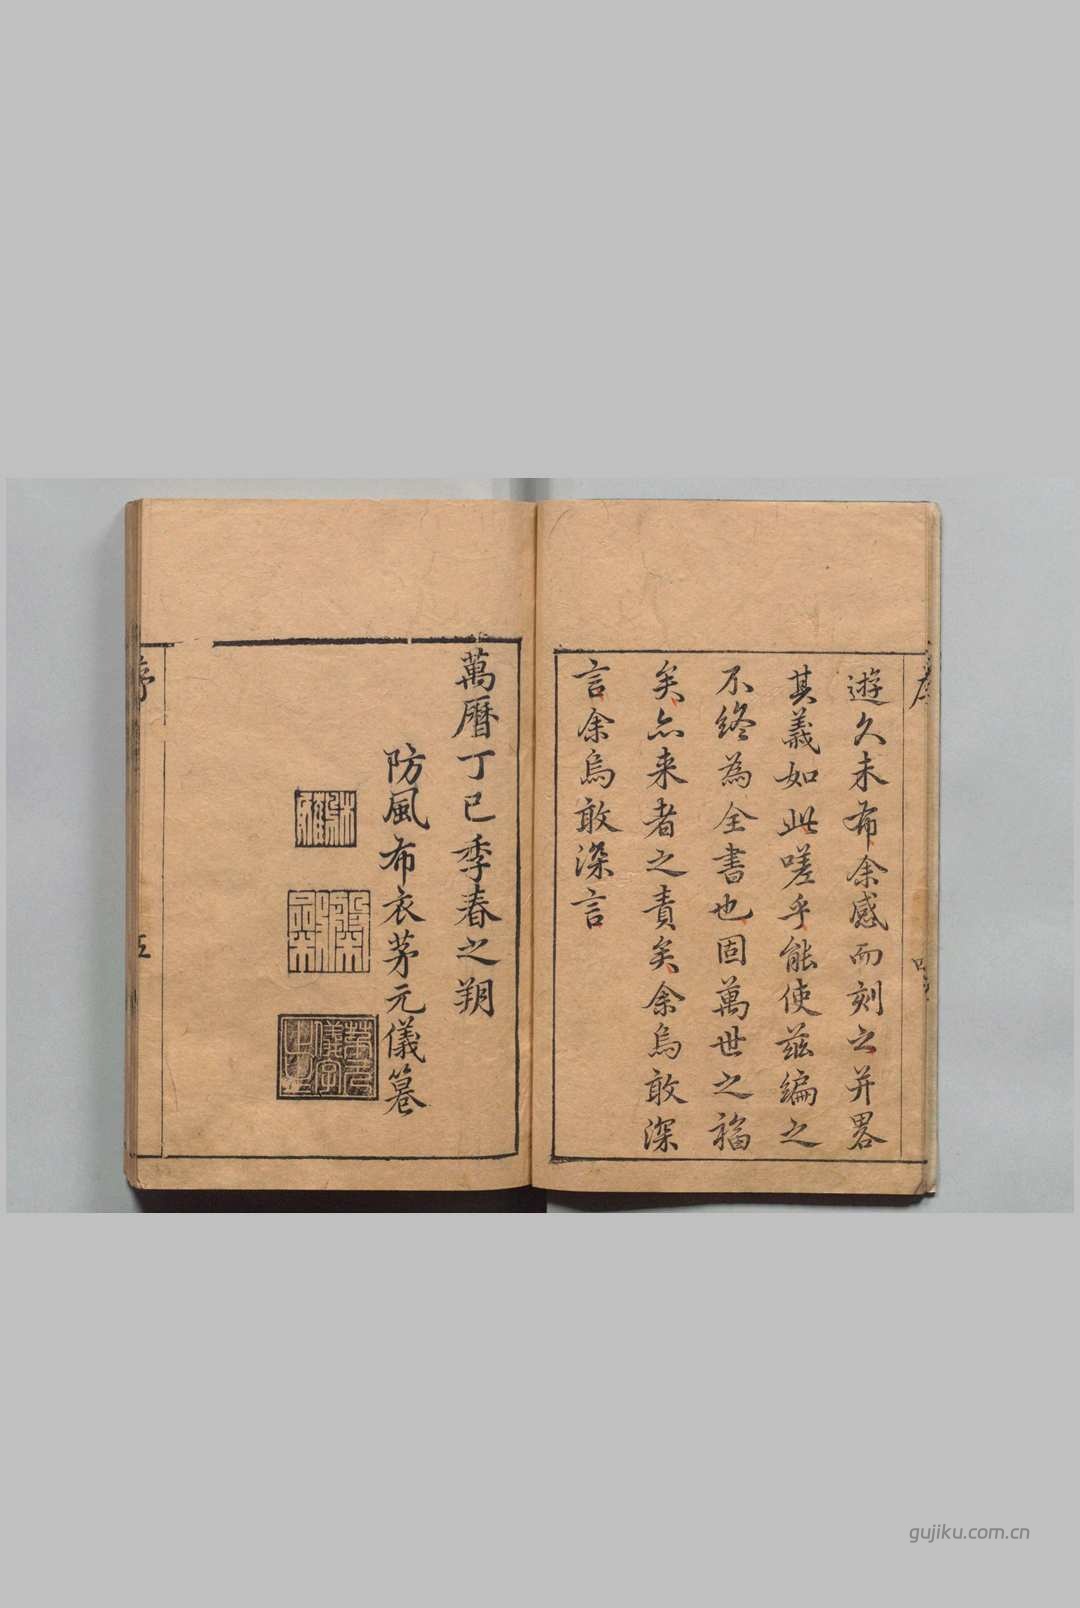 遊久未布余感而刻之并畧
其義如此嗟乎能使茲編之
不終為全書也固萬世之福
矣亦来者之責矣余烏敢深
言余烏敢深言
萬曆丁巳季春之朔
防風布衣茅元儀篹
序
五
gujiku.com.cn